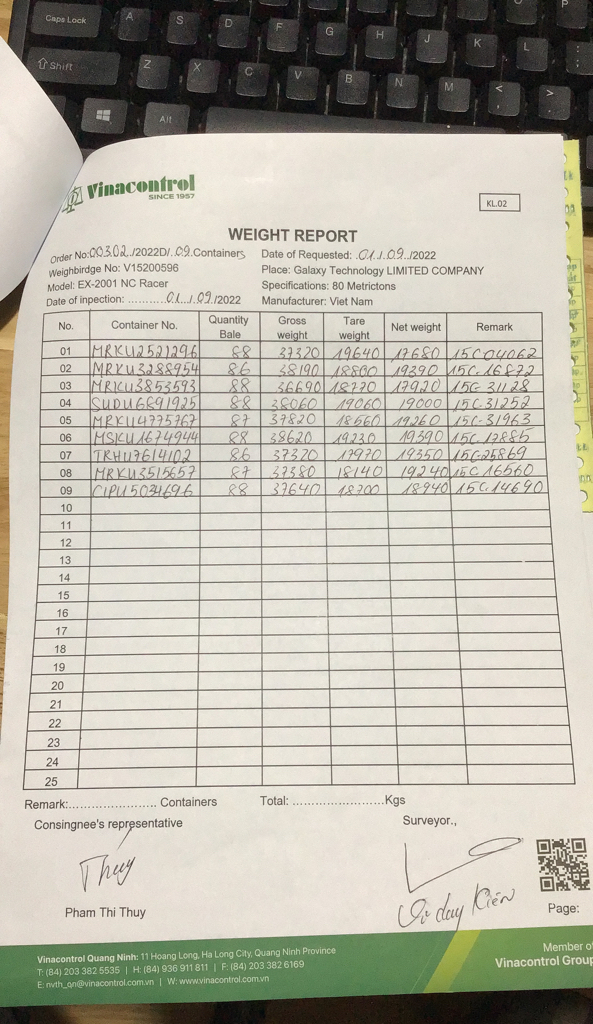 Caps Lock
A
S
D
F
G
H
J
K
L
Shift
Z
X
C
V
B
N
M
<
>
Alt
Vinacontrol
SINCE 1957
KL.02
WEIGHT REPORT
Order No:003.02../2022D/.09.Containers
Date of Requested: .01./.09../2022
Weighbirdge No: V15200596
Place: Galaxy Technology LIMITED COMPANY
Model: EX-2001 NC Racer
Specifications: 80 Metrictons
Date of inpection: ...........01../.09/2022
Manufacturer: Viet Nam
No. Container No. Quantity Bale Gross weight Tare weight Net weight Remark
01 MRKU2521296 88 37320 19640 17680 15C04062
02 MRKU3288954 86 38190 18800 19390 15C.16872
03 MRKU3853593 88 36690 18770 17920 15C-31128
04 SUDU6891925 88 38060 19060 19000 15C-31252
05 MRKU4775767 87 37820 18560 19260 15C-31963
06 MSKU1674944 88 38620 19230 19390 15C-17885
07 TRHU7614102 86 37320 17970 19350 15C-25869
08 MRKU3515657 87 37380 18140 19240 15C 16560
09 CIPU5034696 88 37640 18700 18940 15C.14690
10
11
12
13
14
15
16
17
18
19
20
21
22
23
24
25
Remark:...................... Containers Total: .......................Kgs
Consingnee's representative
Surveyor.,
Thuy
Pham Thi Thuy
Page:
Vinacontrol Quang Ninh: 11 Hoang Long, Ha Long City, Quang Ninh Province
T: (84) 203 382 5535 | H: (84) 936 911 811 | F: (84) 203 382 6169
E: nvth_qn@vinacontrol.com.vn | W: www.vinacontrol.com.vn
Member of
Vinacontrol Group